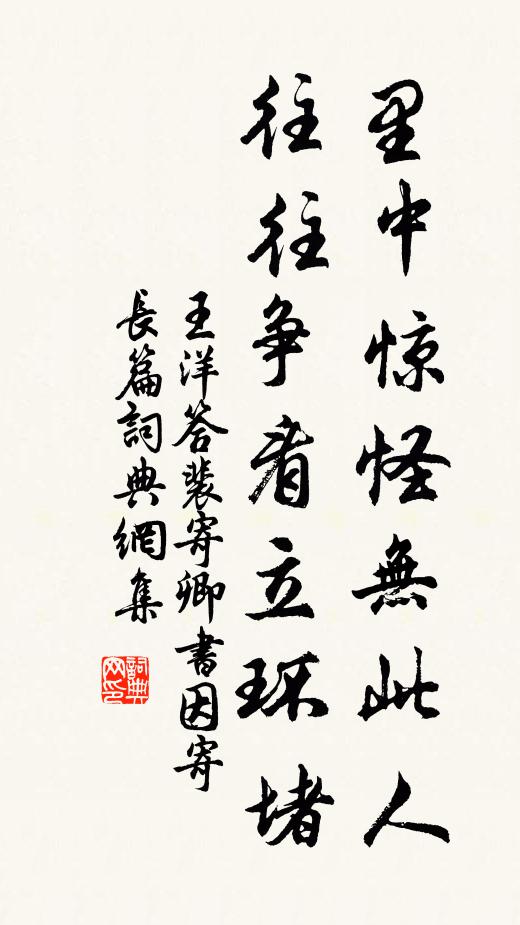 里中惊怪無此人
往往争看立环堵
王洋答裴寄卿書因寄
長篇詞典網集
詞典
网印